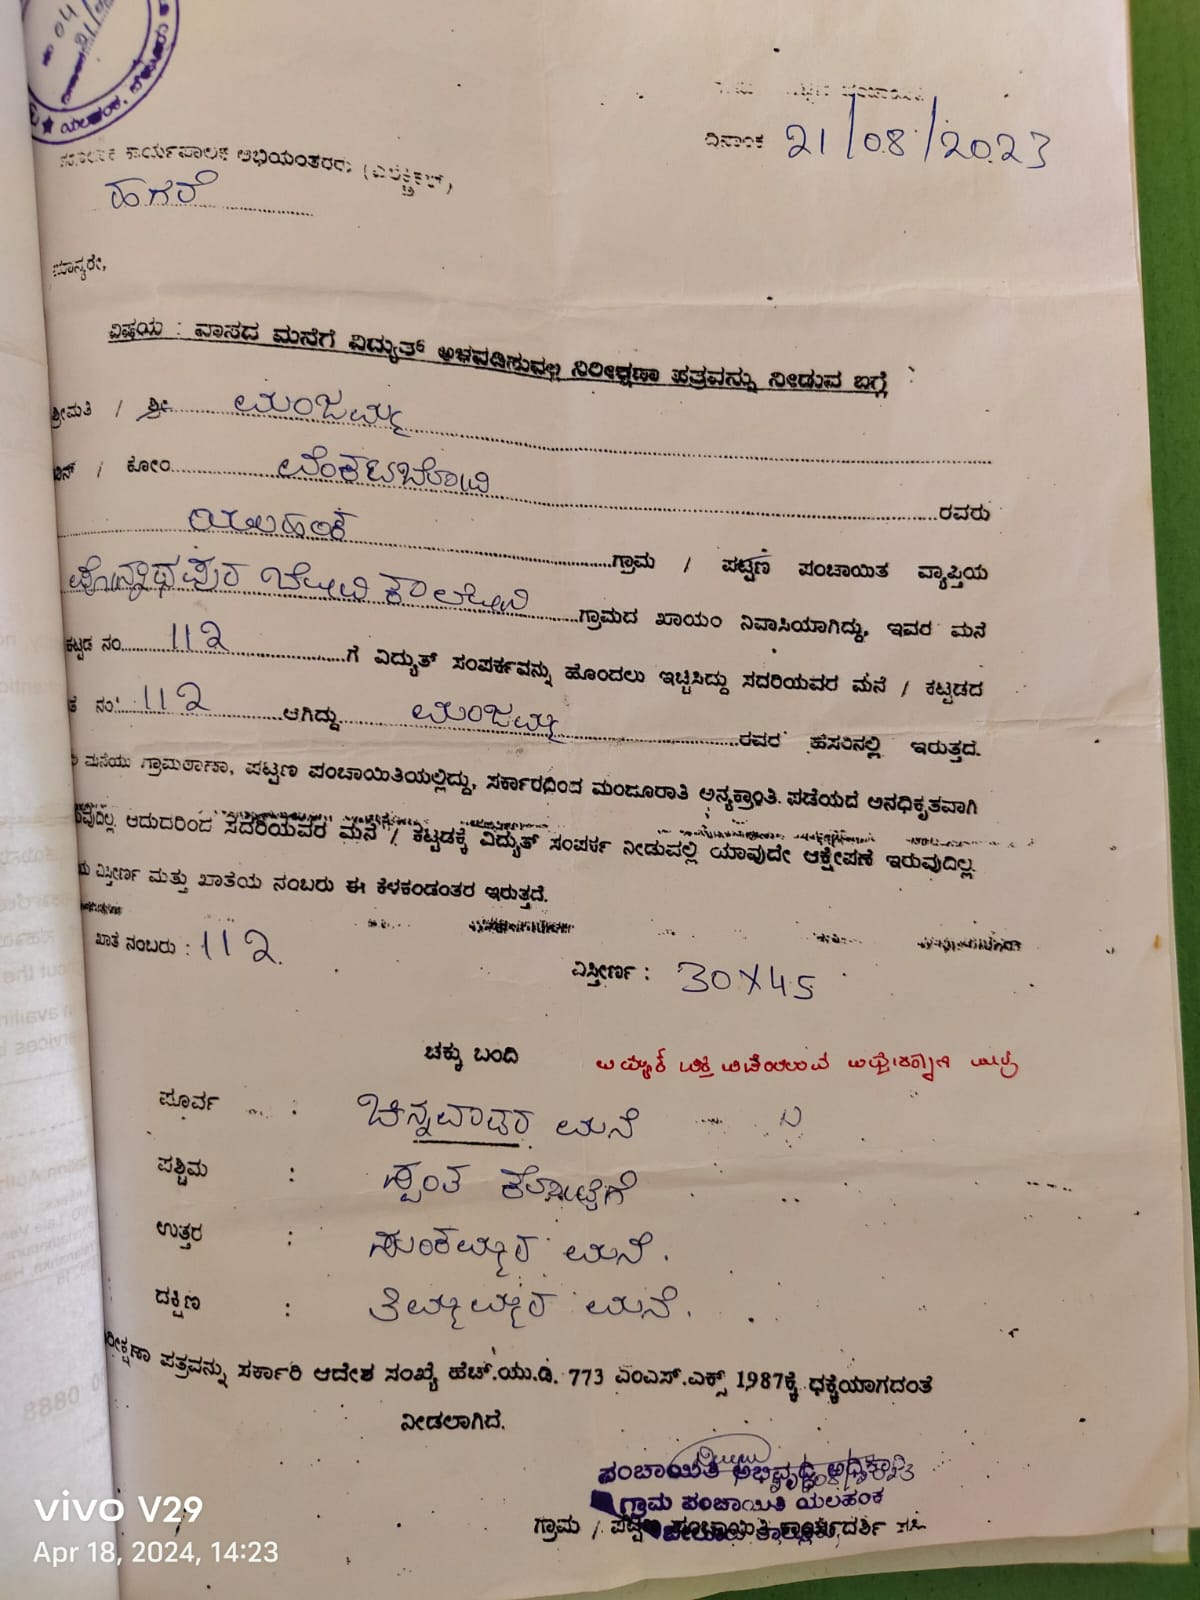 ನಂ 04
21/08
ಯಲಹಂಕ,
ಪಂಚಾಯಿತಿ
ದಿನಾಂಕ 21/08/2023
ಕಾರ್ಯಪಾಲಕ ಅಭಿಯಂತರರು (ಎಲೆಕ್ಟ್ರಿಕಲ್)
ಹಗರೆ
ಮಾನ್ಯರೇ,
ವಿಷಯ : ವಾಸದ ಮನೆಗೆ ವಿದ್ಯುತ್ ಅಳವಡಿಸುವಲ್ಲಿ ನಿರೀಕ್ಷಣಾ ಪತ್ರವನ್ನು ನೀಡುವ ಬಗ್ಗೆ
ಶ್ರೀಮತಿ / ಶ್ರೀ ಮಂಜಮ್ಮ
ಬಿನ್ / ಕೋಂ ವೆಂಕಟಬೋವಿ ರವರು
ಯಲಹಂಕ ಗ್ರಾಮ / ಪಟ್ಟಣ ಪಂಚಾಯಿತ ವ್ಯಾಪ್ತಿಯ
ಬೋವಿ ಕಾಲೋನಿ ಗ್ರಾಮದ ಖಾಯಂ ನಿವಾಸಿಯಾಗಿದ್ದು, ಇವರ ಮನೆ
ಕಟ್ಟಡ ನಂ. 112 ಗೆ ವಿದ್ಯುತ್ ಸಂಪರ್ಕವನ್ನು ಹೊಂದಲು ಇಚ್ಚಿಸಿದ್ದು ಸದರಿಯವರ ಮನೆ / ಕಟ್ಟಡದ
ತೆ ನಂ. 112 ಆಗಿದ್ದು ಮಂಜಮ್ಮ ರವರ ಹೆಸರಿನಲ್ಲಿ ಇರುತ್ತದೆ.
ಮನೆಯು ಗ್ರಾಮಠಾಣಾ, ಪಟ್ಟಣ ಪಂಚಾಯಿತಿಯಲ್ಲಿದ್ದು, ಸರ್ಕಾರದಿಂದ ಮಂಜೂರಾತಿ ಅನ್ಯಕ್ರಾಂತಿ ಪಡೆಯದೆ ಅನಧಿಕೃತವಾಗಿ
ರುವುದಿಲ್ಲ. ಆದುದರಿಂದ ಸದರಿಯವರ ಮನೆ / ಕಟ್ಟಡಕ್ಕೆ ವಿದ್ಯುತ್ ಸಂಪರ್ಕ ನೀಡುವಲ್ಲಿ ಯಾವುದೇ ಆಕ್ಷೇಪಣೆ ಇರುವುದಿಲ್ಲ.
ಯ ವಿಸ್ತೀರ್ಣ ಮತ್ತು ಖಾತೆಯ ನಂಬರು ಈ ಕೆಳಕಂಡಂತರ ಇರುತ್ತದೆ.
ಖಾತೆ ನಂಬರು : 112.
ವಿಸ್ತೀರ್ಣ : 30X45
ಚಕ್ಕು ಬಂದಿ
ಪೂರ್ವ : ಮನೆ
ಪಶ್ಚಿಮ : ಸ್ವಂತ ಕೊಟ್ಟಿಗೆ
ಉತ್ತರ : ಸುಂಕಮ್ಮರ ಮನೆ.
ದಕ್ಷಿಣ : ತಿಮ್ಮಮ್ಮರ ಮನೆ.
ರೀಕ್ಷಣಾ ಪತ್ರವನ್ನು ಸರ್ಕಾರಿ ಆದೇಶ ಸಂಖ್ಯೆ ಹೆಚ್.ಯು.ಡಿ. 773 ಎಂಎಸ್.ಎಕ್ಸ್ 1987ಕ್ಕೆ ಧಕ್ಕೆಯಾಗದಂತೆ
ನೀಡಲಾಗಿದೆ.
ಪಂಚಾಯಿತಿ ಅಭಿವೃದ್ಧಿ ಅಧಿಕಾರಿ
ಗ್ರಾಮ ಪಂಚಾಯಿತಿ ಯಲಹಂಕ
ಗ್ರಾಮ / ಪಟ್ಟಣ ಪಂಚಾಯಿತಿ ಕಾರ್ಯದರ್ಶಿ ಸಹಿ
vivo V29
Apr 18, 2024, 14:23